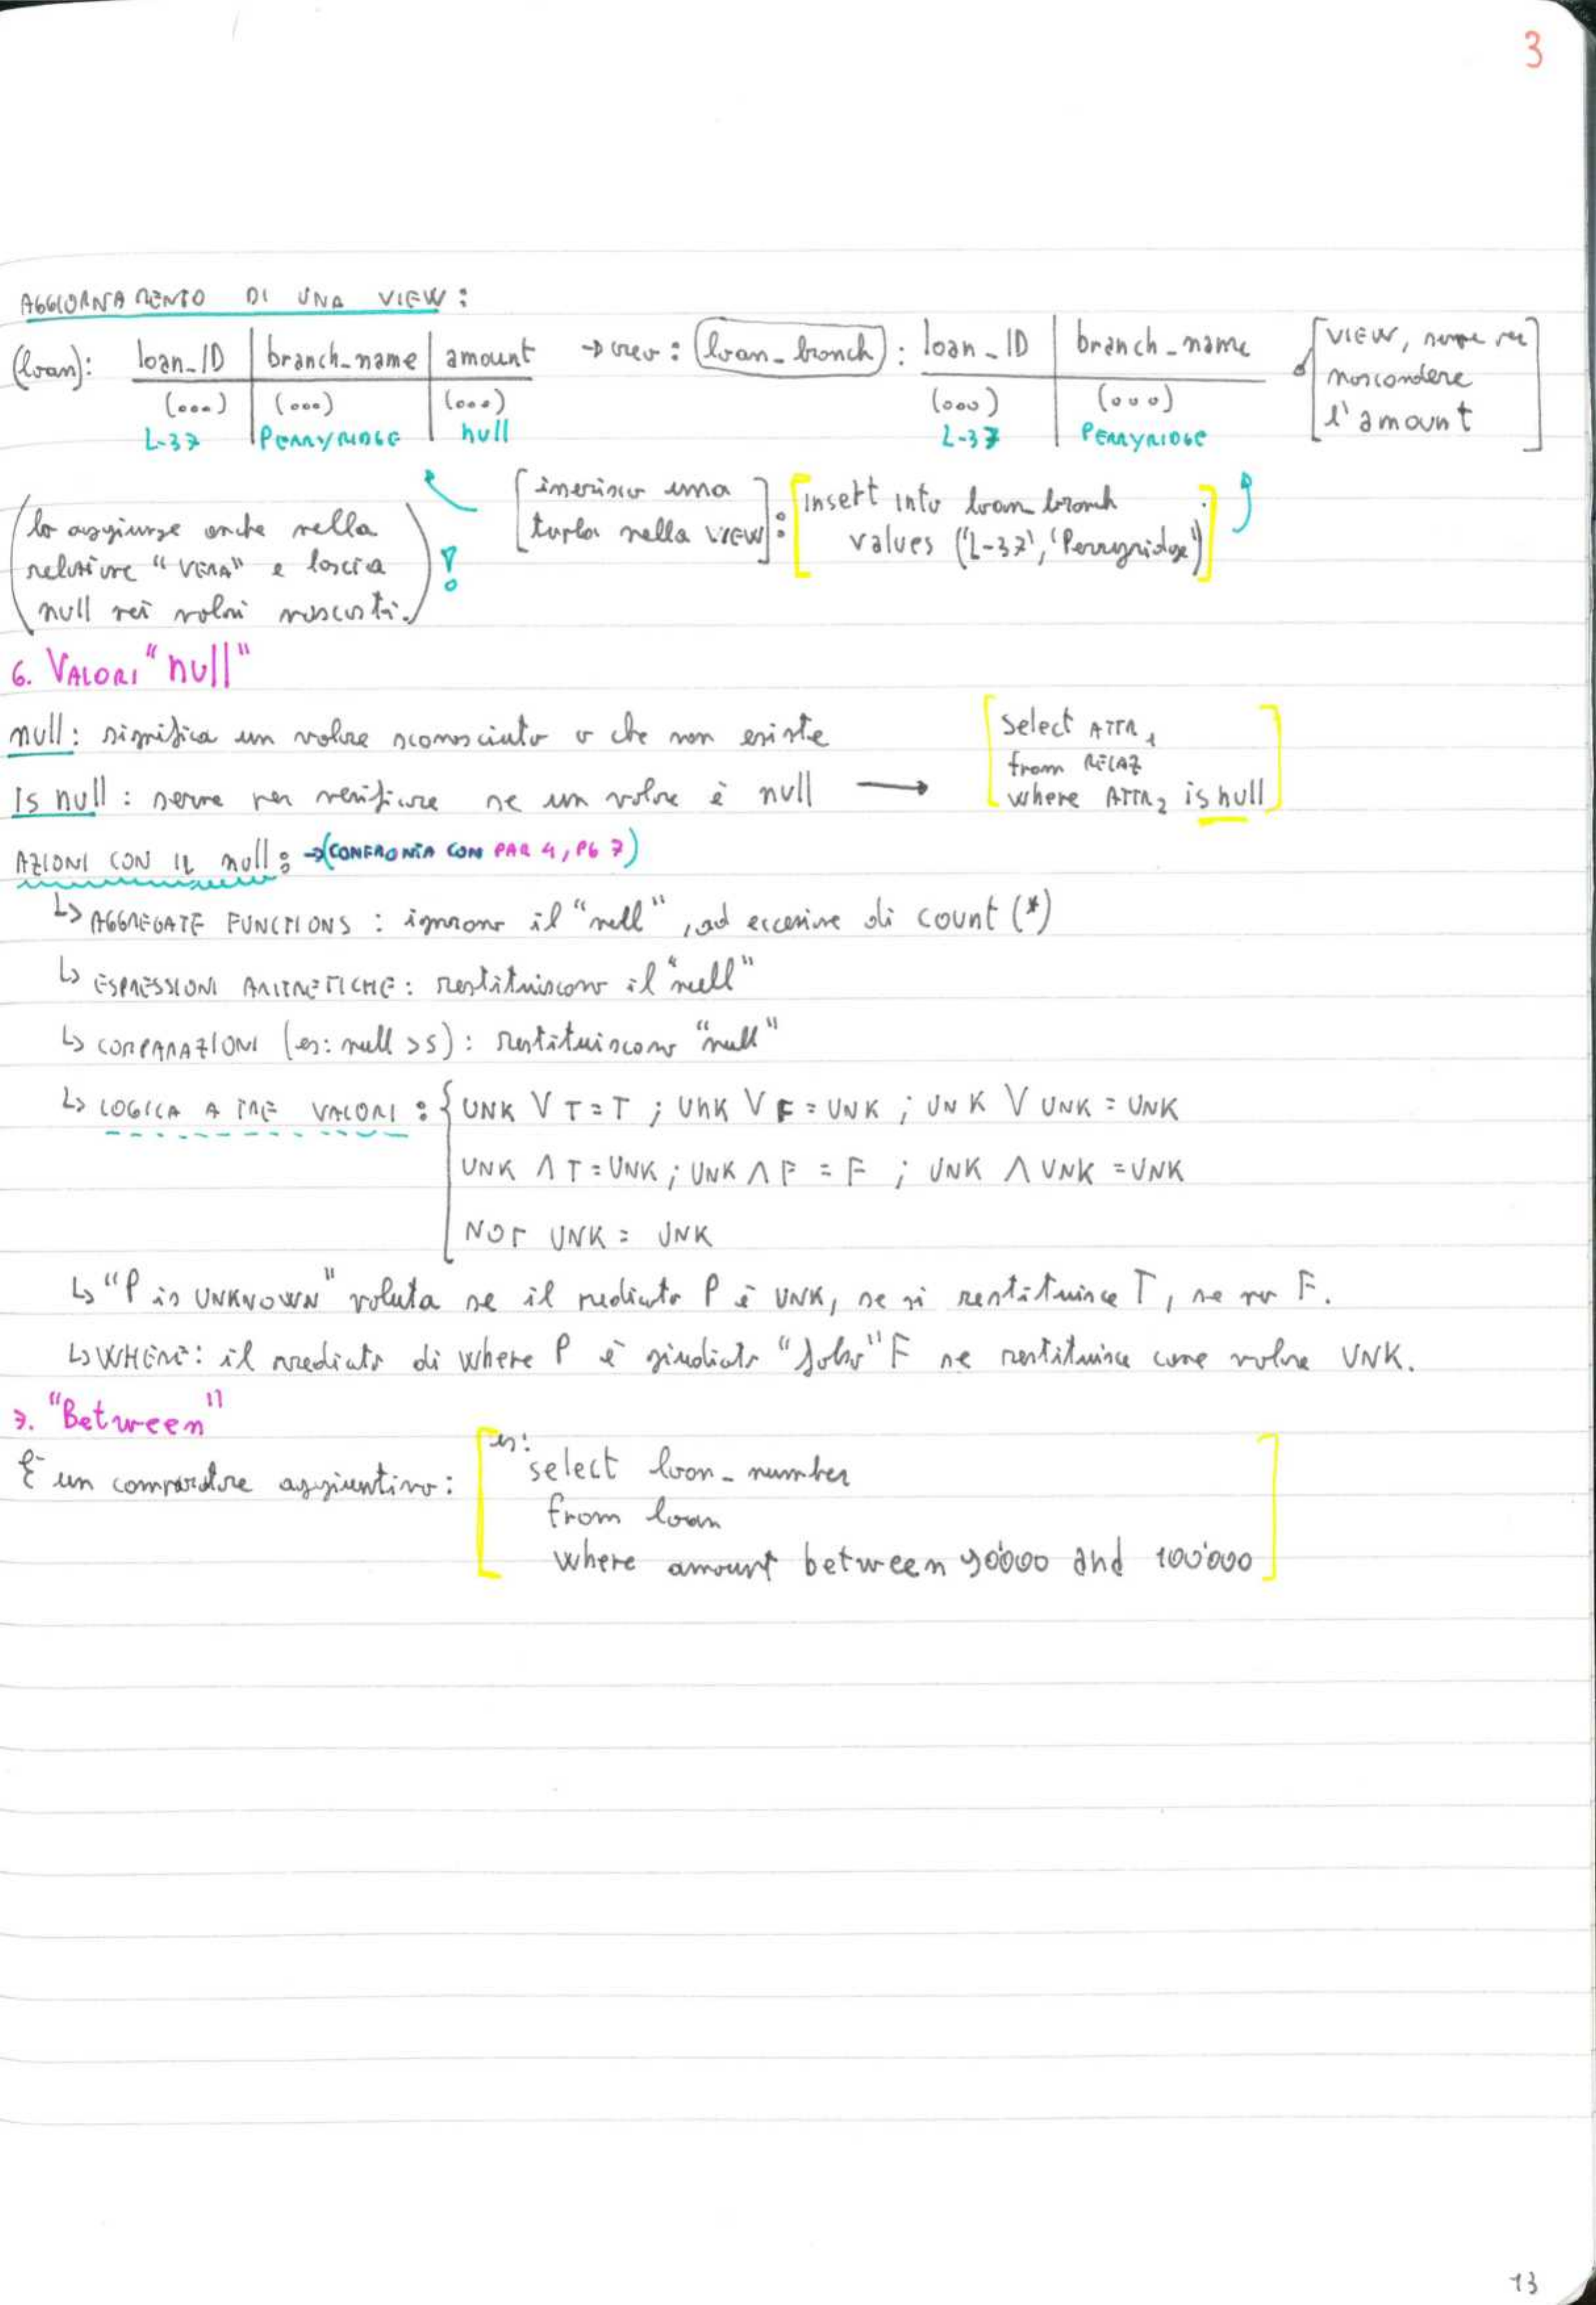 3
AGGIORNAMENTO DI UNA VIEW:
(loan): loan_ID | branch_name | amount → creo: loan_branch : loan_ID | branch_name [VIEW, serve per
(...) (...) (...) (...) (...) nascondere
L-37 PERRYRIDGE null L-37 PERRYRIDGE l'amount]
[inserisco una
tupla nella VIEW]: [insert into loan_branch
values ('L-37', 'Perryridge')]
(lo aggiunge anche nella
relazione "VERA" e lascia
null nei valori nascosti.) !
6. VALORI "null"
null: significa un valore sconosciuto o che non esiste
Is null: serve per verificare se un valore è null →
[select ATTR1
from RELAZ
where ATTR2 is null]
AZIONI CON IL null: →(CONFRONTA CON PAR 4, PG 7)
↳ AGGREGATE FUNCTIONS: ignorano il "null", ad eccezione di count (*)
↳ ESPRESSIONI ARITMETICHE: restituiscono il "null"
↳ COMPARAZIONI (es: null >5): restituiscono "null"
↳ LOGICA A TRE VALORI: { UNK V T = T ; UNK V F = UNK ; UNK V UNK = UNK
UNK Λ T = UNK ; UNK Λ F = F ; UNK Λ UNK = UNK
NOT UNK = UNK
↳ "P is UNKNOWN" valuta se il predicato P è UNK, se sì restituisce T, se no F.
↳ WHERE: il predicato di where P è giudicato "falso" F se restituisce come valore UNK.
7. "Between"
È un comparatore aggiuntivo: [es:
select loan_number
from loan
where amount between 90'000 and 100'000]
13